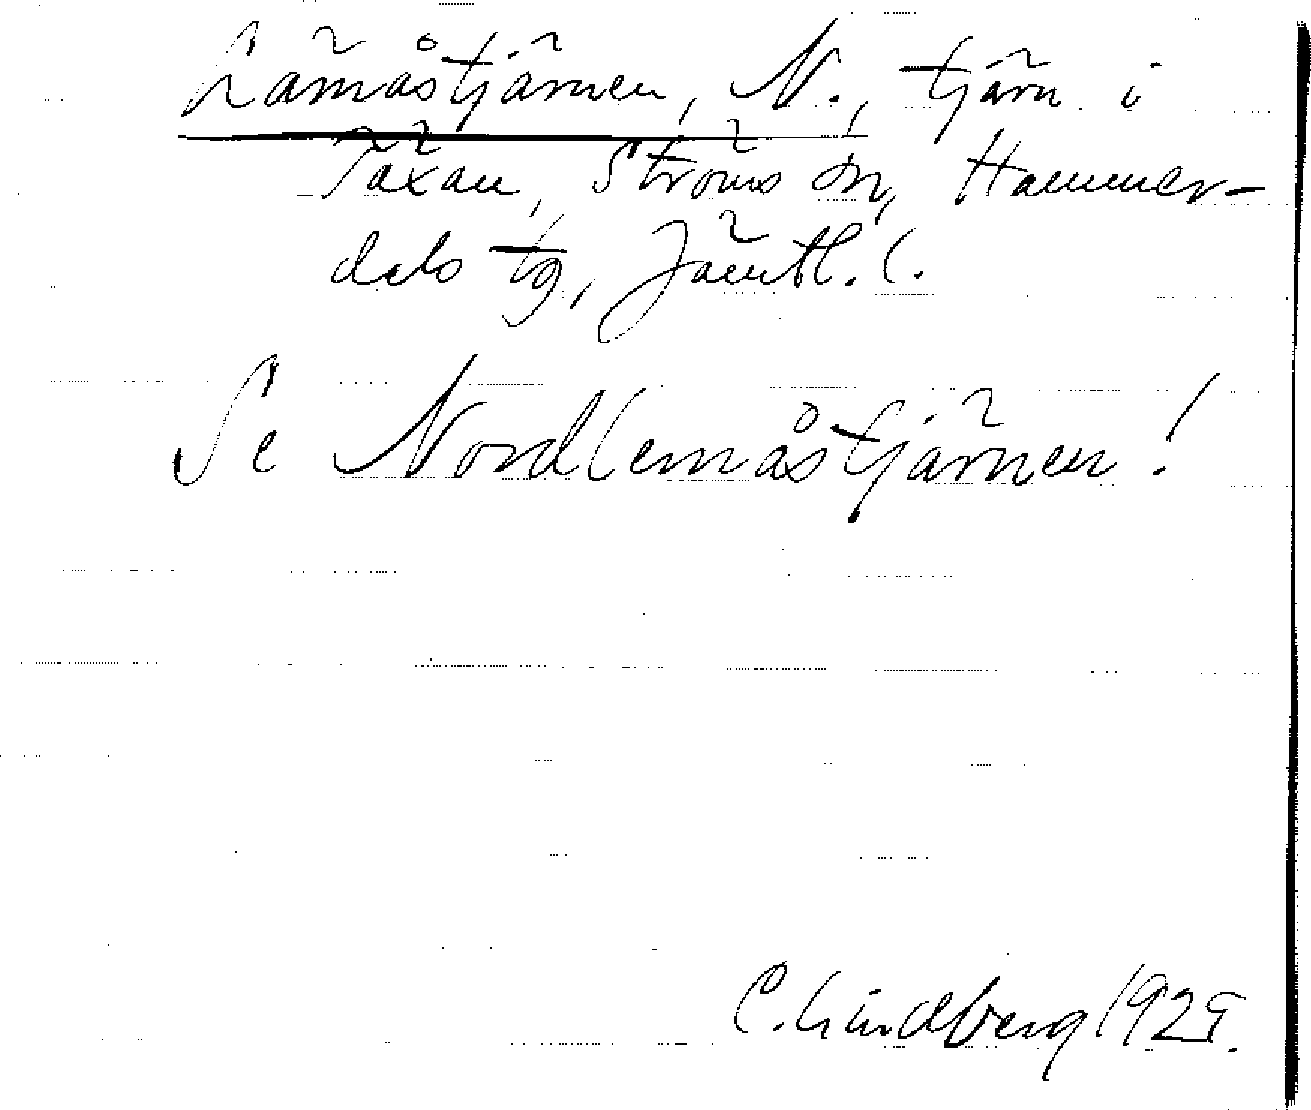 Lämåstjärnen, N., tjärn i
Täxan, Ströms sn, Hammer-
dals tg, Jämtl. l.
Se Nordlemåstjärnen!
C. Lindberg 1925.